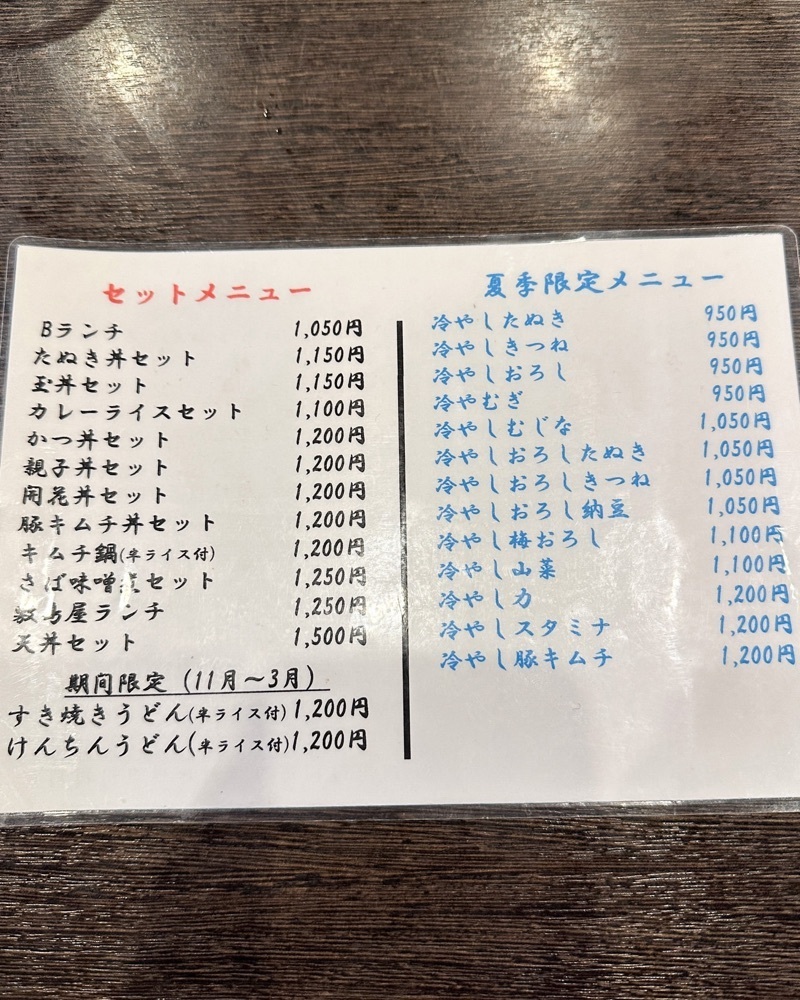 セットメニュー
Bランチ 1,050円
たぬき丼セット 1,150円
玉丼セット 1,150円
カレーライスセット 1,100円
かつ丼セット 1,200円
親子丼セット 1,200円
開花丼セット 1,200円
豚キムチ丼セット 1,200円
キムチ鍋(半ライス付) 1,200円
さば味噌煮セット 1,250円
屋ランチ 1,250円
天丼セット 1,500円
期間限定（11月〜3月）
すき焼きうどん(半ライス付) 1,200円
けんちんうどん(半ライス付) 1,200円
夏季限定メニュー
冷やしたぬき 950円
冷やしきつね 950円
冷やしおろし 950円
冷やむぎ 950円
冷やしむじな 1,050円
冷やしおろしたぬき 1,050円
冷やしおろしきつね 1,050円
冷やしおろし納豆 1,050円
冷やし梅おろし 1,100円
冷やし山菜 1,100円
冷やし力 1,200円
冷やしスタミナ 1,200円
冷やし豚キムチ 1,200円